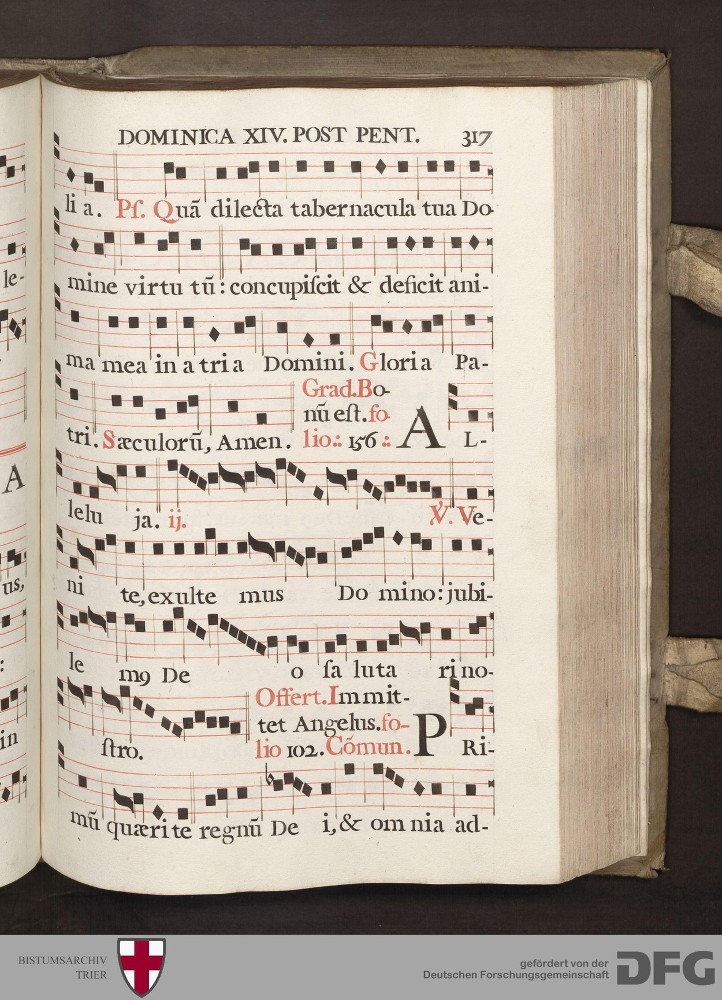 DOMINICA XIV. POST PENT. 317
li a. Pſ. Quā dilecta tabernacula tua Do-
mine virtu tū: concupiſcit & deficit ani-
ma mea in a tria Domini. Gloria Pa-
tri. Sæculorū, Amen.
Grad. Bo-
nū eſt. fo-
lio.: 156.:
A L-
lelu ja. ij. ℣. Ve-
ni te, exulte mus Do mino: jubi-
le m9 De o ſa luta ri no-
ſtro.
Offert. Immit-
tet Angelus. fo-
lio 102. Cōmun.
P Ri-
mū quærite regnū De i, & om nia ad-
le-
A
us,
:
in
BISTUMSARCHIV
TRIER
gefördert von der
Deutschen Forschungsgemeinschaft
DFG